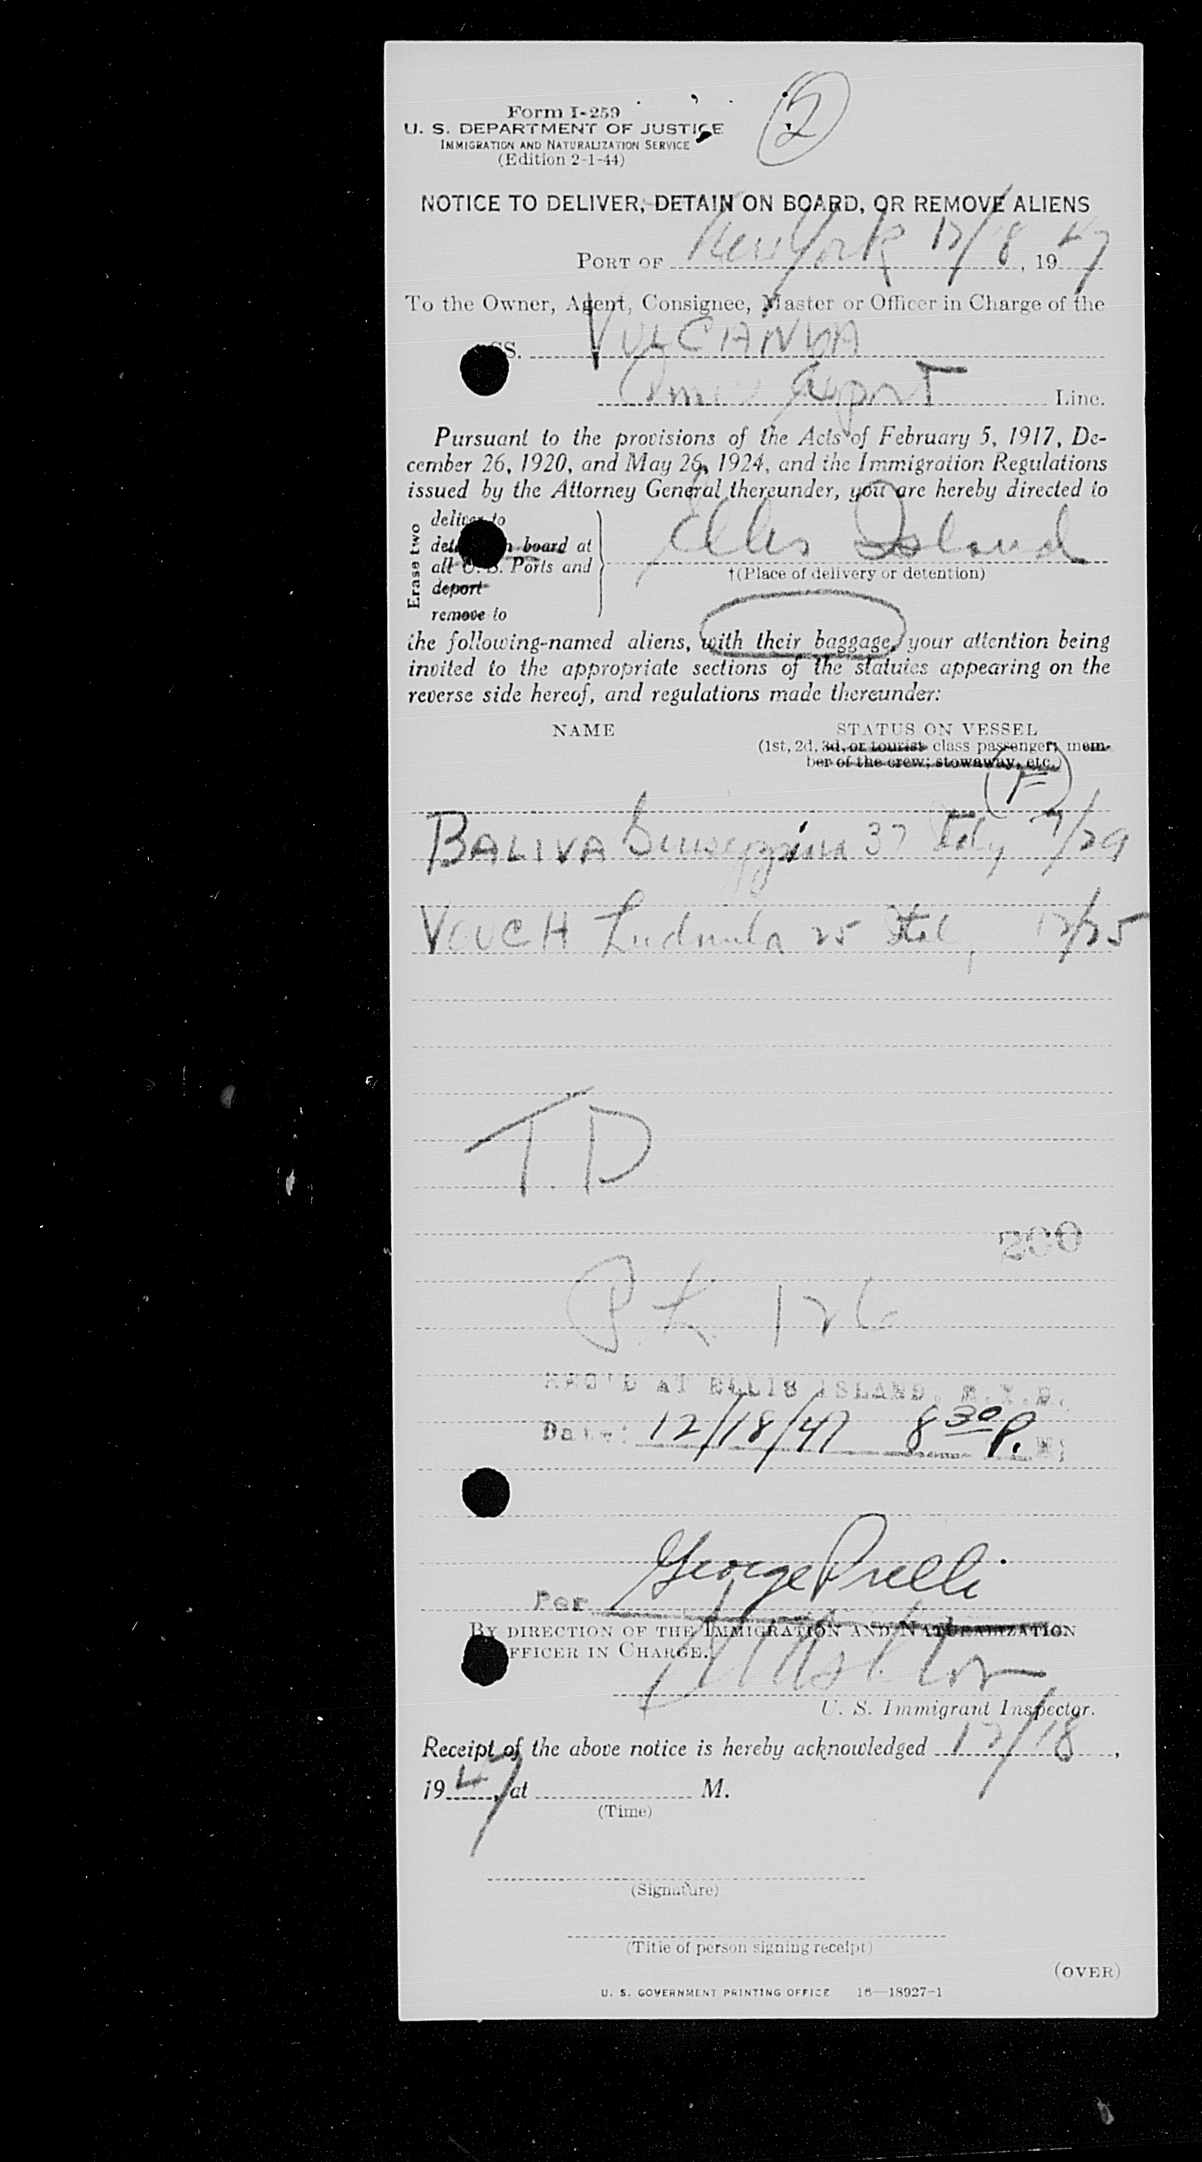 Form I-259
2
U. S. DEPARTMENT OF JUSTICE
IMMIGRATION AND NATURALIZATION SERVICE
(Edition 2-1-44)
NOTICE TO DELIVER, DETAIN ON BOARD, OR REMOVE ALIENS
PORT OF New York 12/18, 1947
To the Owner, Agent, Consignee, Master or Officer in Charge of the
SS. VULCANIA
Amer Export Line.
Pursuant to the provisions of the Acts of February 5, 1917, De-
cember 26, 1920, and May 26, 1924, and the Immigration Regulations
issued by the Attorney General thereunder, you are hereby directed to
Erase two
deliver to
board at
all U. S. Ports and
deport
remove to
Ellis Island
†(Place of delivery or detention)
the following-named aliens, with their baggage, your attention being
invited to the appropriate sections of the statutes appearing on the
reverse side hereof, and regulations made thereunder:
NAME STATUS ON VESSEL
(1st, 2d, 3d, or tourist class passenger; mem-
ber of the crew; stowaway, etc.)
F
BALIVA Giuseppina 37 Italy 7/29
VOUCH Ludmila 25 Ital 12/25
T.D
200
P.L 126
REC'D AT ELLIS ISLAND, N.Y.D.
Date: 12/18/47 8 30 P. M;
Per George Prelli
BY DIRECTION OF THE IMMIGRATION AND NATURALIZATION
OFFICER IN CHARGE.
U. S. Immigrant Inspector.
Receipt of the above notice is hereby acknowledged 12/18,
1947, at M.
(Time)
(Signature)
(Title of person signing receipt)
(OVER)
U. S. GOVERNMENT PRINTING OFFICE 16—18927-1